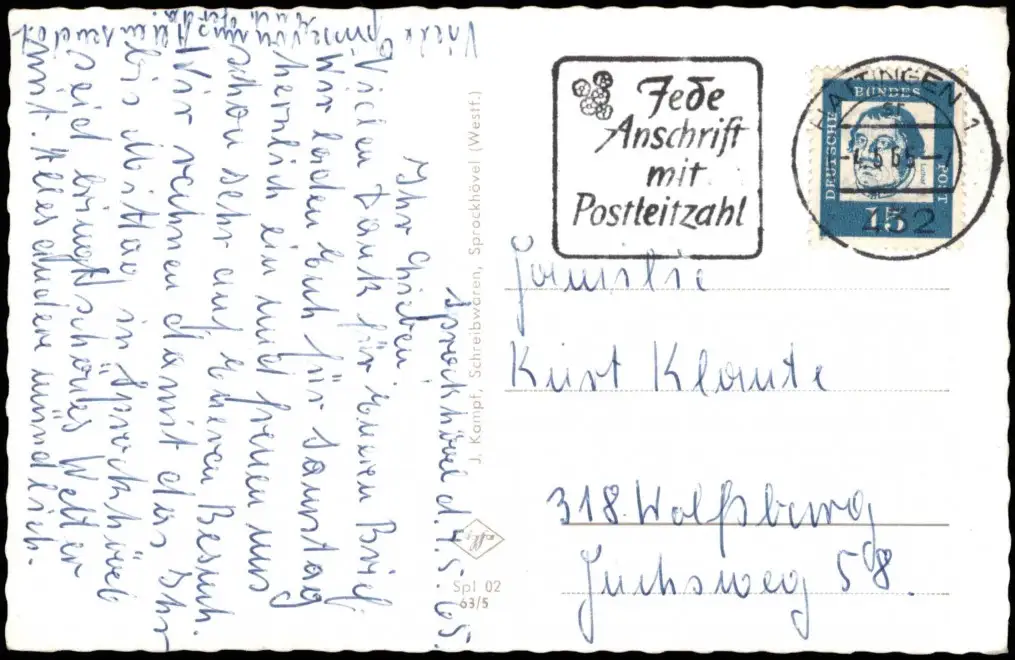 Sprockhövel d. 4.5.65.
Ihr Lieben.
Vielen Dank für Eueren Brief
Wir laden Euch für Samstag
herzlich ein und freuen uns
schon sehr auf Eueren Besuch.
Wir rechnen damit das Ihr
bis Mittag in Sprockhövel
seid bringt schönes Wetter
mit. Alles andere mündlich.
Viele Grüsse von uns Allen sendet
J. Kampf, Schreibwaren, Sprockhövel (Westf.)
Spl 02
63/5
Jede
Anschrift
mit
Postleitzahl
HATTINGEN 1
432
DEUTSCHE
BUNDES
POST
15
Familie
Kurt Klaute
318. Wolfsburg
Fuchsweg 58.